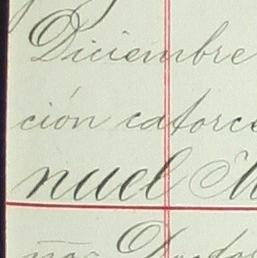 Diciembre
ción catorce
nuel M